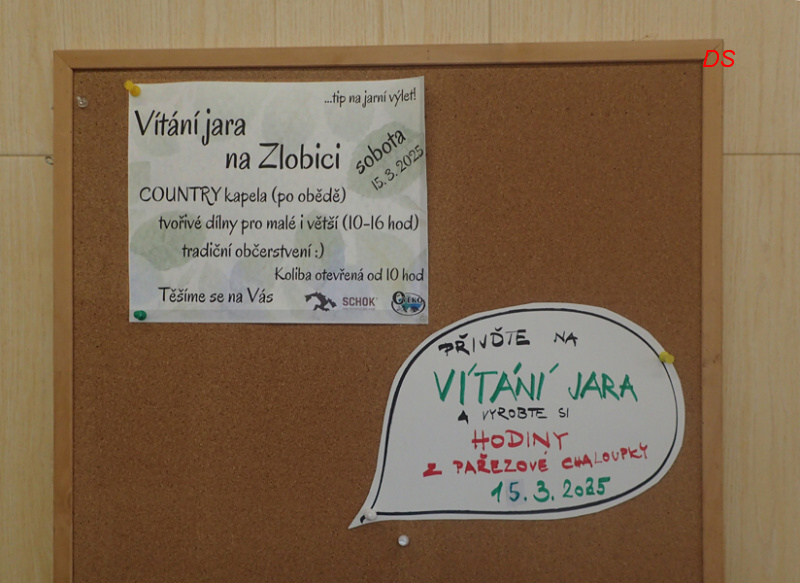 DS
...tip na jarní výlet!
Vítání jara
na Zlobici
sobota
15. 3. 2025
COUNTRY kapela (po obědě)
tvořivé dílny pro malé i větší (10-16 hod)
tradiční občerstvení :)
Koliba otevřená od 10 hod
Těšíme se na Vás
SCHOK
PŘIVĎTE NA
VÍTÁNÍ JARA
A VYROBTE SI
HODINY
Z PAŘEZOVÉ CHALOUPKY
15. 3. 2025